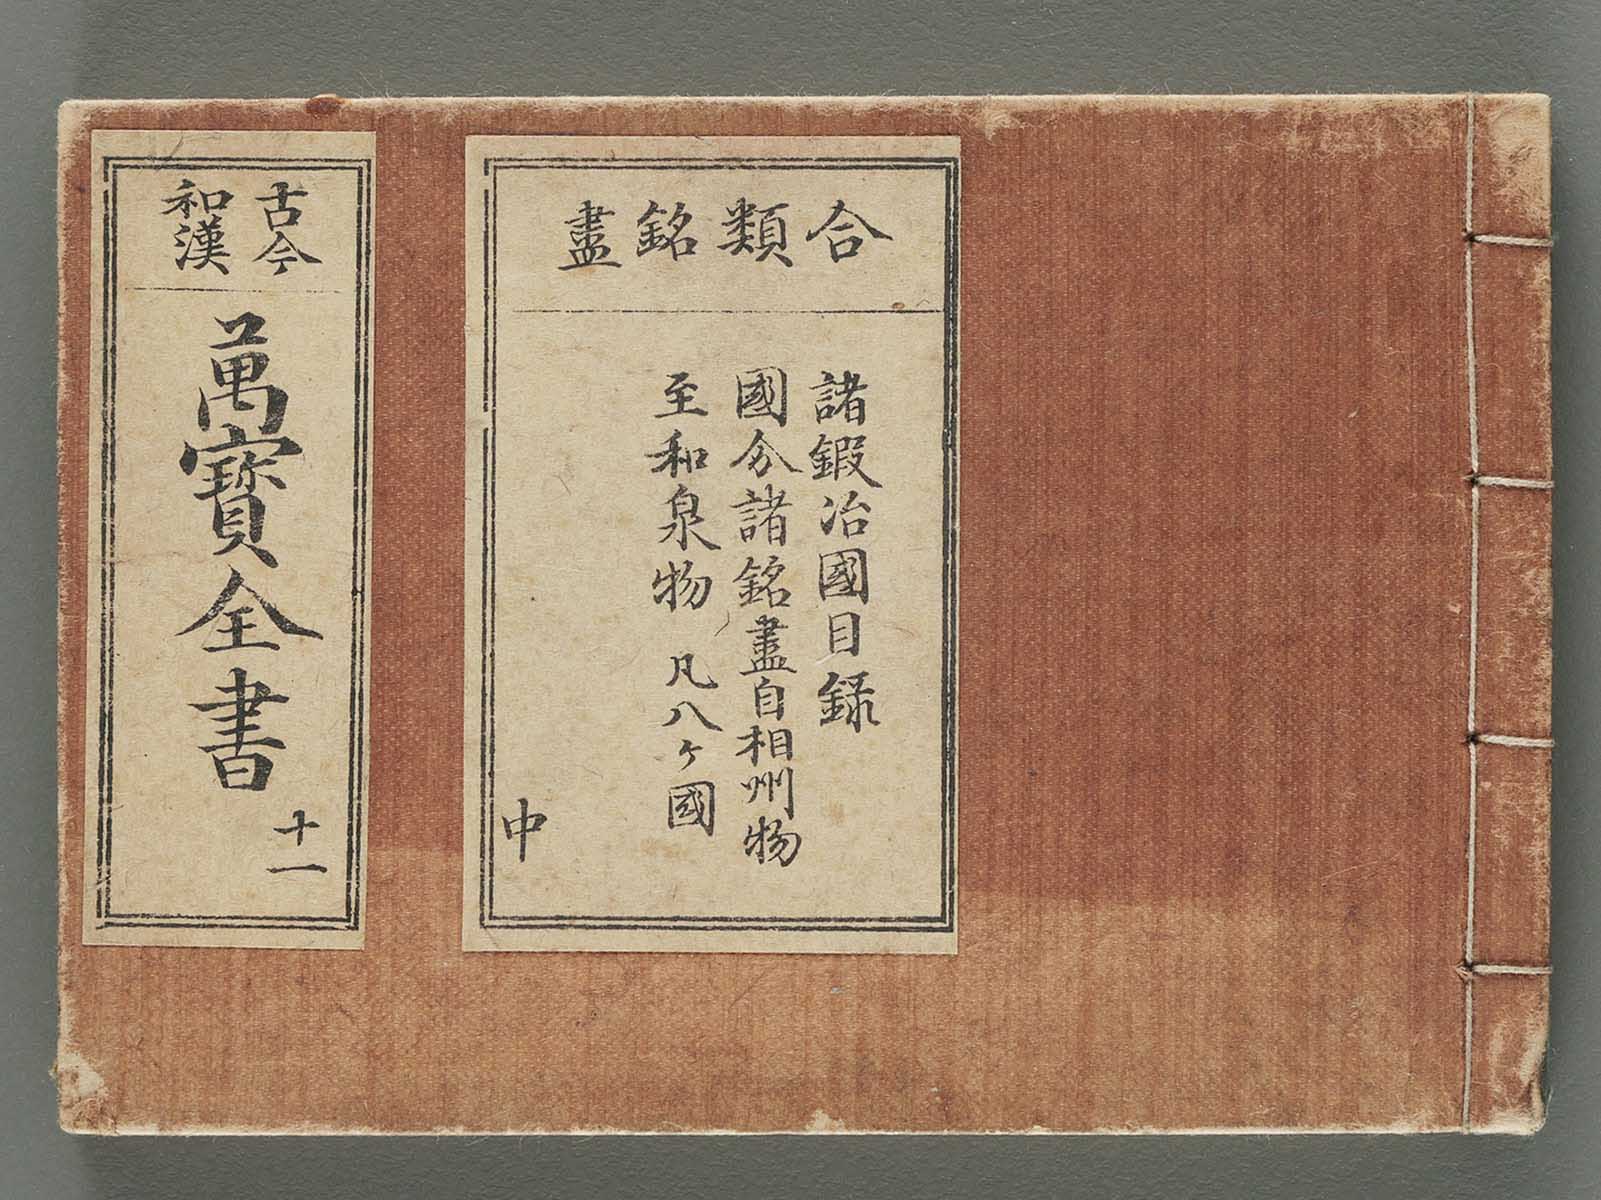 合類銘盡
諸鍜冶國目録
國分諸銘盡自相州物
至和泉物 凡八ケ國
中
古今
和漢
萬寳全書
十一